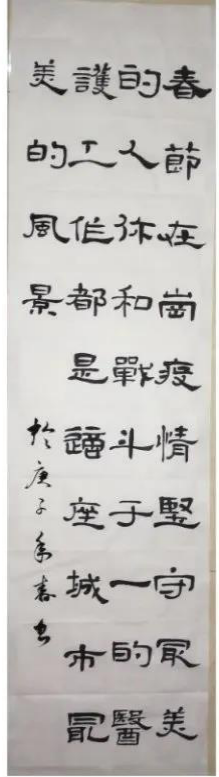 春節在崗疫情堅守最美
的人你和戰斗于一的醫
護工作都是這座城市最
美的風景
於庚子年春書